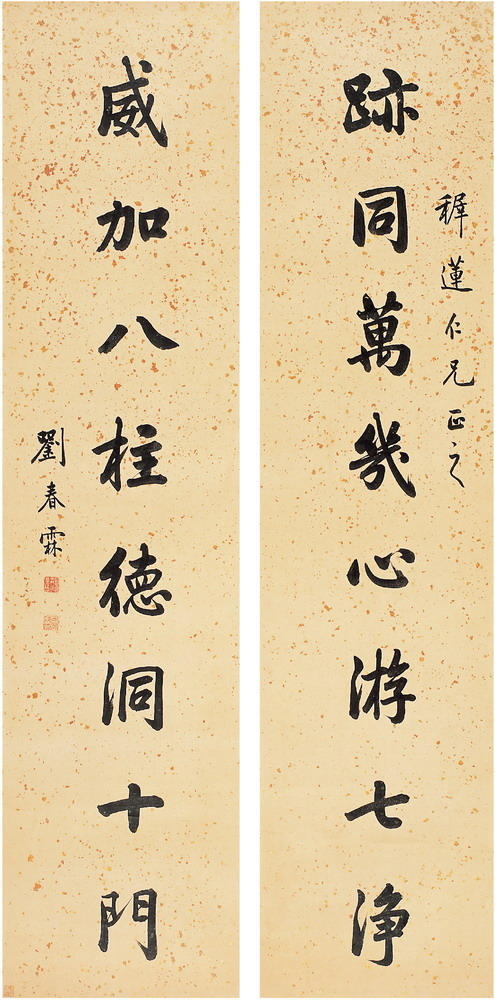 穉蓮仁兄正之
跡同萬幾心游七浄
威加八柱德洞十門
劉春霖